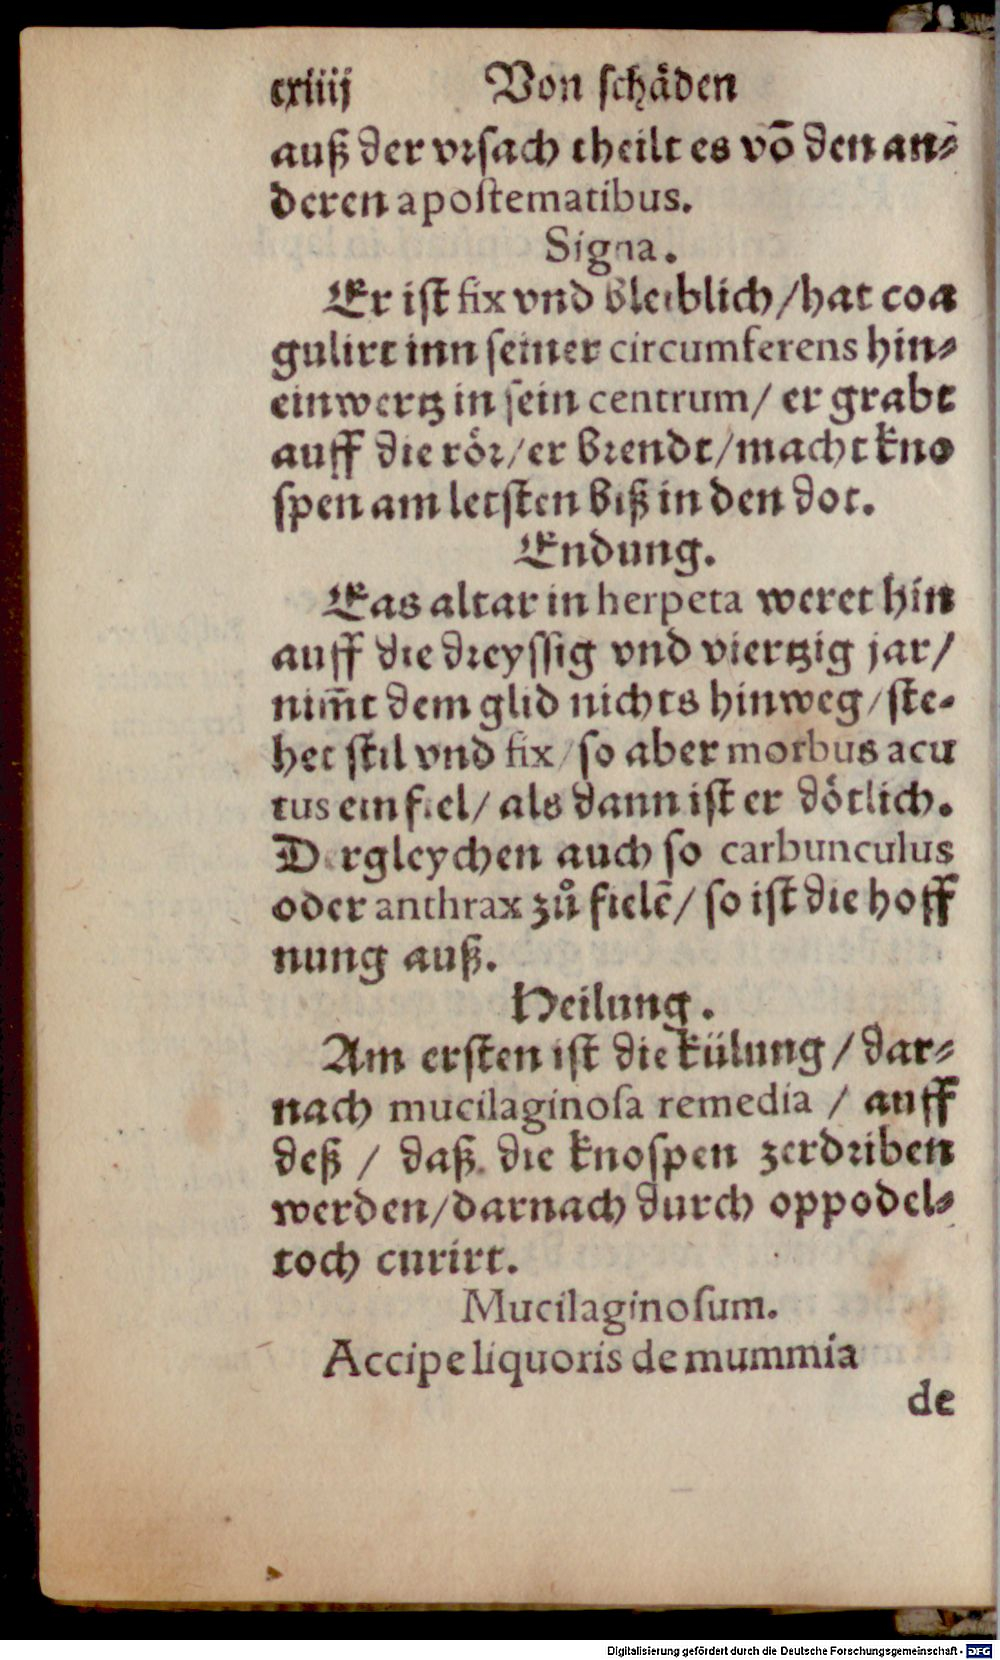 cxiiij Von schäden
auß der vrsach theilt es võ den an⸗
deren apostematibus.
Signa.
Er ist fix vnd bleiblich/hat coa
gulirt inn seiner circumferens hin⸗
einwertz in sein centrum/ er grabt
auff die rör/er brendt/macht kno
spen am letsten biß in den dot.
Endung.
Eas altar in herpeta weret hin
auff die dreyssig vnd viertzig jar/
nim̃t dem glid nichts hinweg/ste⸗
het stil vnd fix/so aber morbus acu
tus ein fiel/ als dann ist er dötlich.
Dergleychen auch so carbunculus
oder anthrax zů fielẽ/ so ist die hoff
nung auß.
Heilung.
Am ersten ist die külung/dar⸗
nach mucilaginosa remedia / auff
deß / daß die knospen zerdriben
werden/darnach durch oppodel⸗
toch curirt.
Mucilaginosum.
Accipe liquoris de mummia
de
Digitalisierung gefördert durch die Deutsche Forschungsgemeinschaft - DFG